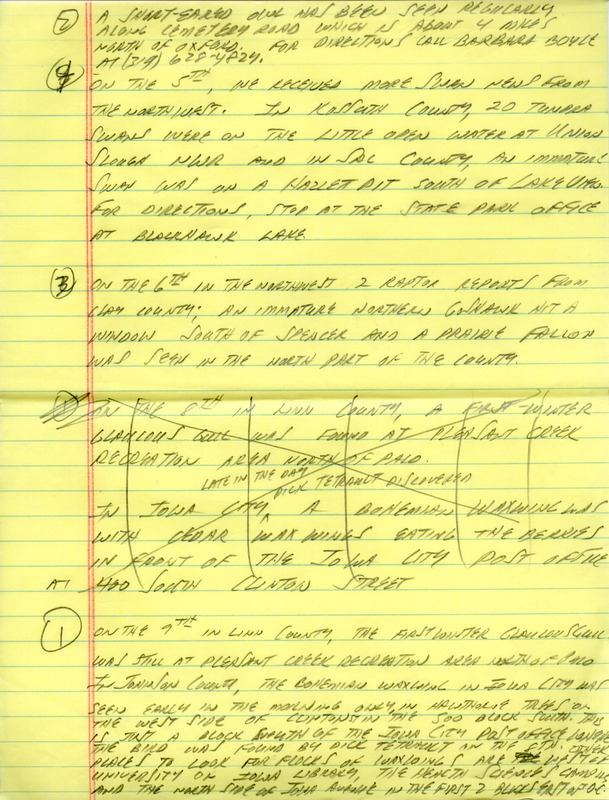 2 A SHORT-EARED OWL HAS BEEN SEEN REGULARLY
ALONG CEMETERY ROAD WHICH IS ABOUT 4 MILES
NORTH OF OXFORD. FOR DIRECTIONS CALL BARBARA BOYLE
AT (319) 628-4824.
4 ON THE 5TH, WE RECEIVED MORE SWAN NEWS FROM
THE NORTHWEST. IN KOSSUTH COUNTY, 20 TUNDRA
SWANS WERE ON THE LITTLE OPEN WATER AT UNION
SLOUGH NWR AND IN SAC COUNTY, AN IMMATURE
SWAN WAS ON A HALLETT PIT SOUTH OF LAKE VIEW.
FOR DIRECTIONS, STOP AT THE STATE PARK OFFICE
AT BLACKHAWK LAKE.
3 ON THE 6TH IN THE NORTHWEST 2 RAPTOR REPORTS FROM
CLAY COUNTY; AN IMMATURE NORTHERN GOSHAWK HIT A
WINDOW SOUTH OF SPENCER AND A PRAIRIE FALCON
WAS SEEN IN THE NORTH PART OF THE COUNTY.
ON THE 8TH IN LINN COUNTY, A FIRST WINTER
GLAUCOUS GULL WAS FOUND AT PLEASANT CREEK
RECREATION AREA NORTH OF PALO.
LATE IN THE DAY DICK TETRAULT DISCOVERED
IN IOWA CITY, A BOHEMIAN WAXWING WAS
WITH CEDAR WAXWINGS EATING THE BERRIES
IN FRONT OF THE IOWA CITY POST OFFICE
AT 400 SOUTH CLINTON STREET
1 ON THE 9TH IN LINN COUNTY, THE FIRST WINTER GLAUCOUS GULL
WAS STILL AT PLEASANT CREEK RECREATION AREA NORTH OF PALO
IN JOHNSON COUNTY, THE BOHEMIAN WAXWING IN IOWA CITY WAS
SEEN EARLY IN THE MORNING ONLY, IN HAWTHORNE TREES ON
THE WEST SIDE OF CLINTON IN THE 500 BLOCK SOUTH. THIS
IS JUST A BLOCK SOUTH OF THE IOWA CITY POST OFFICE WHERE
THE BIRD WAS FOUND BY DICK TETRAULT ON THE 8TH. OTHER
PLACES TO LOOK FOR FLOCKS OF WAXWINGS ARE WEST OF
UNIVERSITY OF IOWA LIBRARY, THE HEALTH SCIENCES CAMPUS
AND THE NORTH SIDE OF IOWA AVENUE IN THE FIRST 2 BLOCKS EAST OF